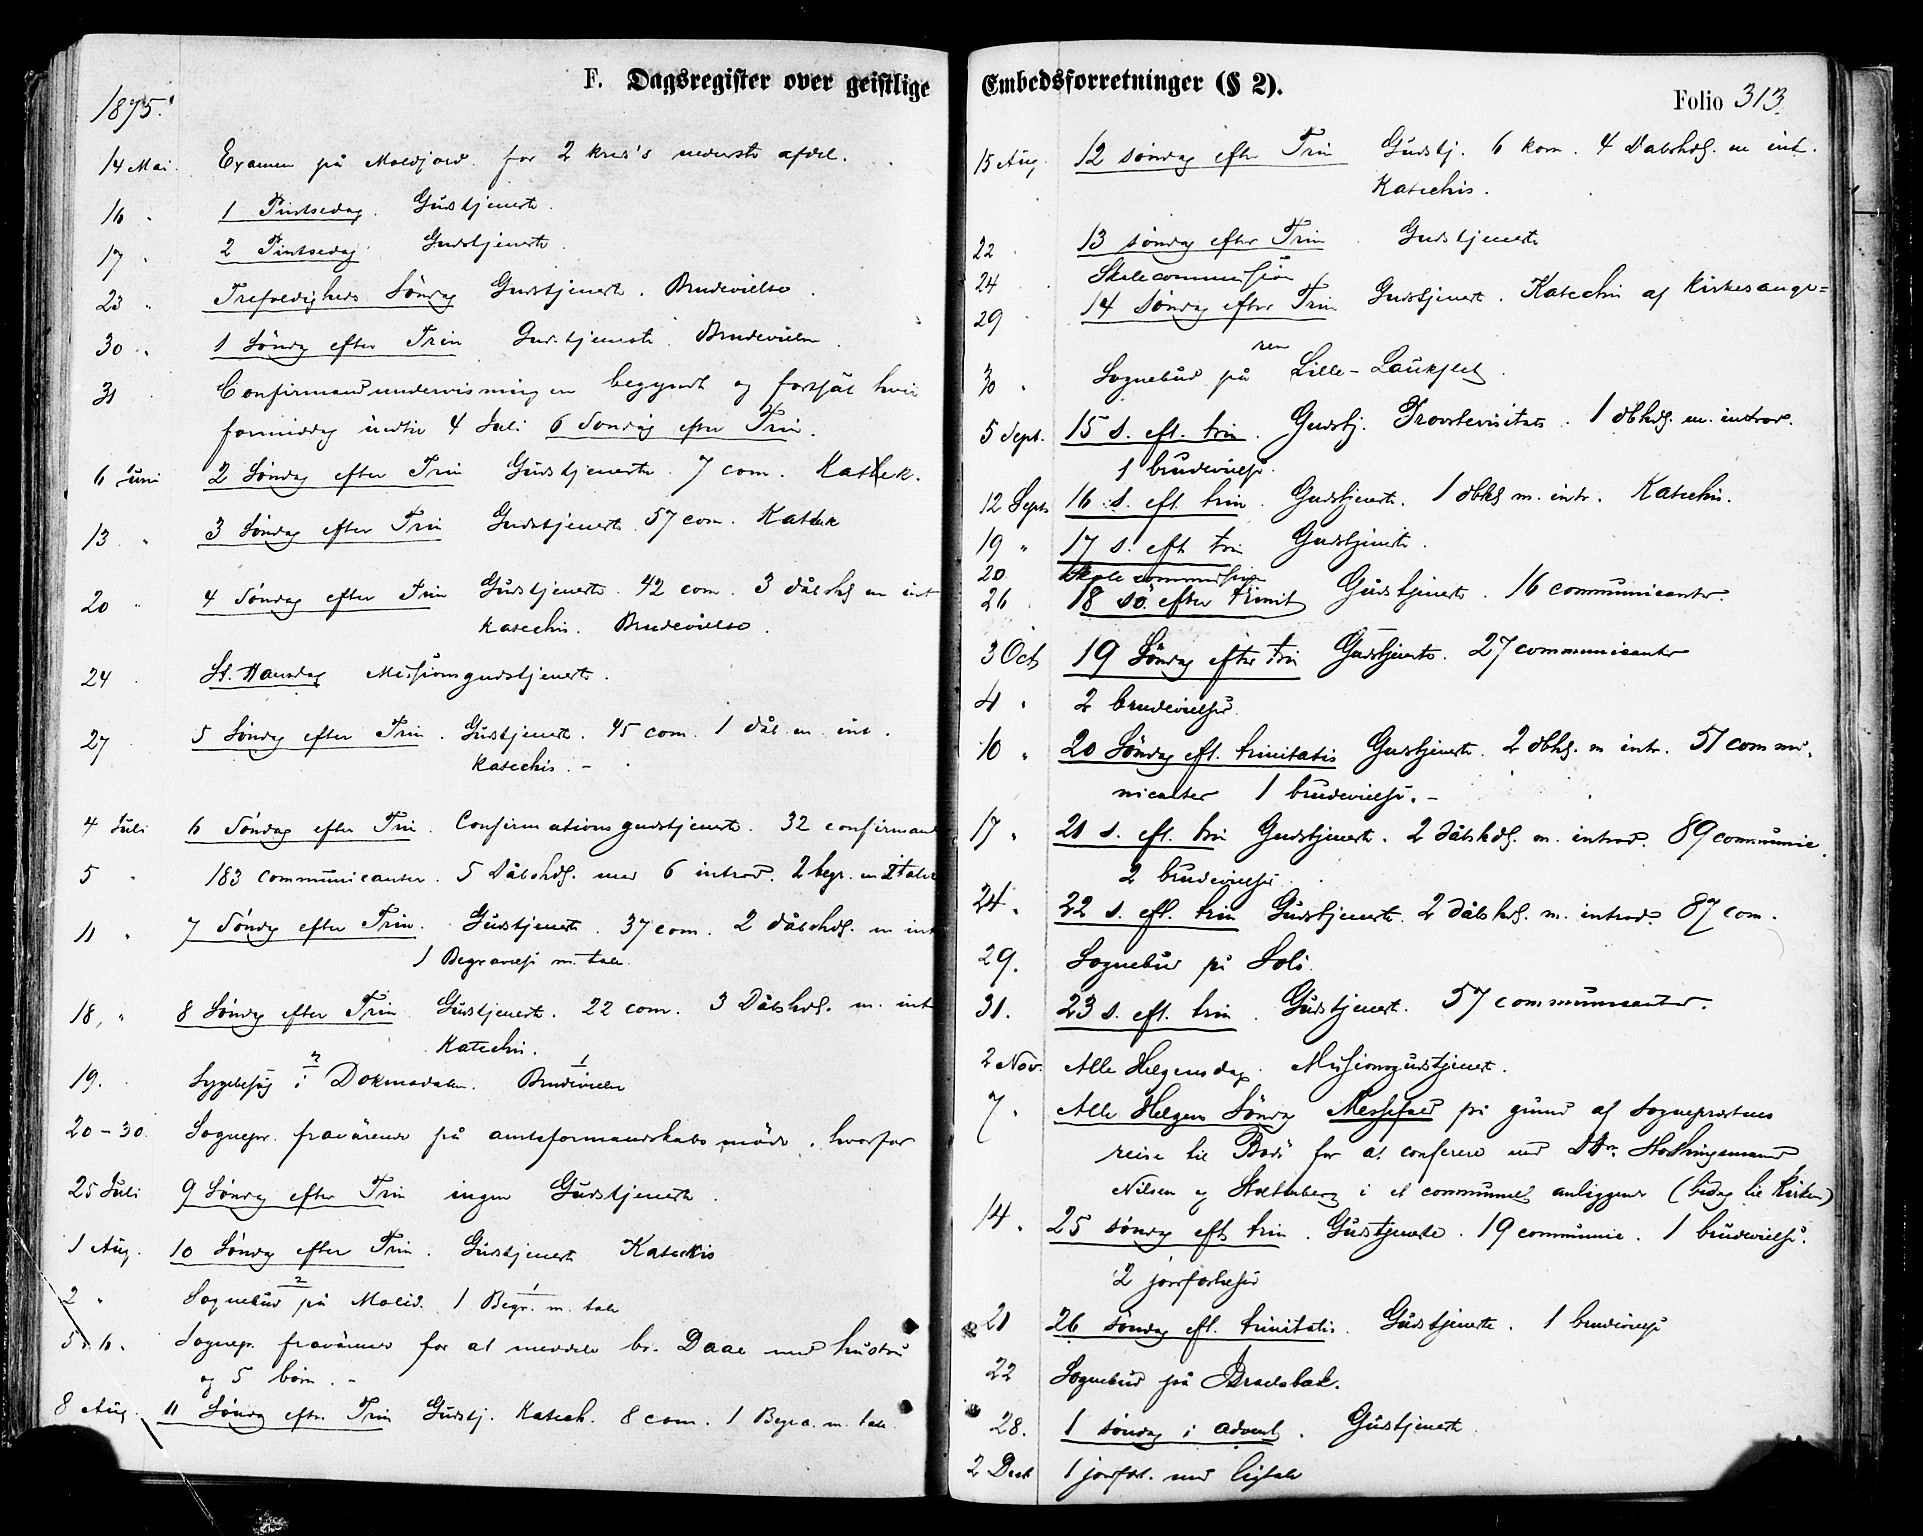 F. Dagsregister over geistlige
1875.
14 Mai. Examen på Moldjord for 2 kreds's nederste afdel.
16 " 1 Pintsedag. Gudstjeneste.
17 " 2 Pintsedag. Gudstjeneste.
23 " Trefoldigheds Söndag Gudstjeneste. Brudevielse.
30 " 1 Söndag efter Trin Gudstjeneste. Brudevielse
31 Confirmandundervisningen begyndt og fortsat hver
formiddag indtil 4 Juli 6 Sondag efter Trin.
6 Juni 2 Söndag efter Trin Gudstjeneste. 7 com. Katek.
13 " 3 Söndag efter Trin Gudstjeneste. 57 com. Katek
20 " 4 Söndag efter Trin Gudstjeneste. 42 com. 3 dåbshdl m int
Katechis. Brudevielse.
24 St. Hansdag Missionsgudstjeneste.
27 5 Söndag efter Trin. Gudstjeneste. 45 com. 1 dåb. m. int.
Katechis. -
4 Juli 6 Söndag efter Trin. Confirmationsgudstjeneste. 32 confirmand
5 " 183 communicanter. 5 Dåbshdl. med 6 introd. 2 begr. m 2 taler
11 " 7 Söndag efter Trin. Gudstjeneste. 37 com. 2 dåbshdl. m int
1 Begravelse m. tale.
18 " 8 Söndag efter Trin Gudstjeneste. 22 com. 3 Dåbshdl. m. int
Katechis.
19. Sygebesög i Dokmodalen. 1 Brudevielse
20-30. Sognepr. fraværende på amtsformandskabsmöde, hvorfor
25 Juli 9 Söndag efter Trin ingen Gudstjeneste.
1 Aug. 10 Söndag efter Trin. Gudstjeneste Katechis
2 " Sognebud på Molid. 1 Begr. m. tale
5 & 6. Sognepr. fraværende for at meddele br. Daae med hustru
og 5 börn. -
8 Aug. 11 Söndag efter Trin Gudstj. Katech. 8 com. 1 Begra. m. tale.
Embedsforretninger (§ 2).
Folio 313.
15 Aug. 12 söndag efter Trin Gudstj. 6 kom. 4 Dabshdl. m int.
Katechis.
22 13 söndag efter Trin. Gudstjeneste
24 Skolecommission
29 14 Söndag efter Trin Gudstjeneste. Katechis af Kirkesange=
ren
30 " Sognebud på Lille-
5 Sept. 15 s. eft. trin. Gudstj. Provstevisitats. 1 dbhdl. m. introd.
1 brudevielse.
12 Sept 16 s. eft. trin. Gudstjeneste. 1 dbhdl m. intr. Katechis.
19 " 17 s. eft trin Gudstjeneste.
20 Skolecommission
26 18 sö. efter trinit Gudstjeneste. 16 communicanter.
3 Oct 19 Söndag efter trin Gudstjeneste. 27 communicanter
4 " 2 brudevielser.
10 " 20 Söndag eft. trinitatis Gudstjeneste. 2 dbhdl. m intr. 51 commu-
nicanter 1 brudevielse. -
17 " 21 s. eft. trin Gudstjeneste. 2 dåbshdl. m. introd. 89 communic.
2 brudevielser.
24. 22 s. eft. trin Gudstjeneste. 2 dåbshdl. m. introd. 87 com.
29. Sognebud på Soli.
31. 23 s. eft. trin. Gudstjeneste. 57 communicanter.
2 Nov. Alle Helgensdag. Missionsgudstjeneste.
7. Alle Helgens Söndag Messefald på grund af sogneprestens
reise til Bodö for at conferere med Storthingsmænd
Nilsen og Stoltenberg i et communalt anliggende (bidrag til Kirken)
14. 25 söndag eft trin. Gudstjeneste. 19 communic. 1 brudevielse.
2 jordfæstelser
21 26 söndag eft. trinitatis. Gudstjeneste. 1 brudevielse
22 Sognebud på
28. 1 söndag i advent. Gudstjeneste
2 Decb 1 jordfæst. med ligtale